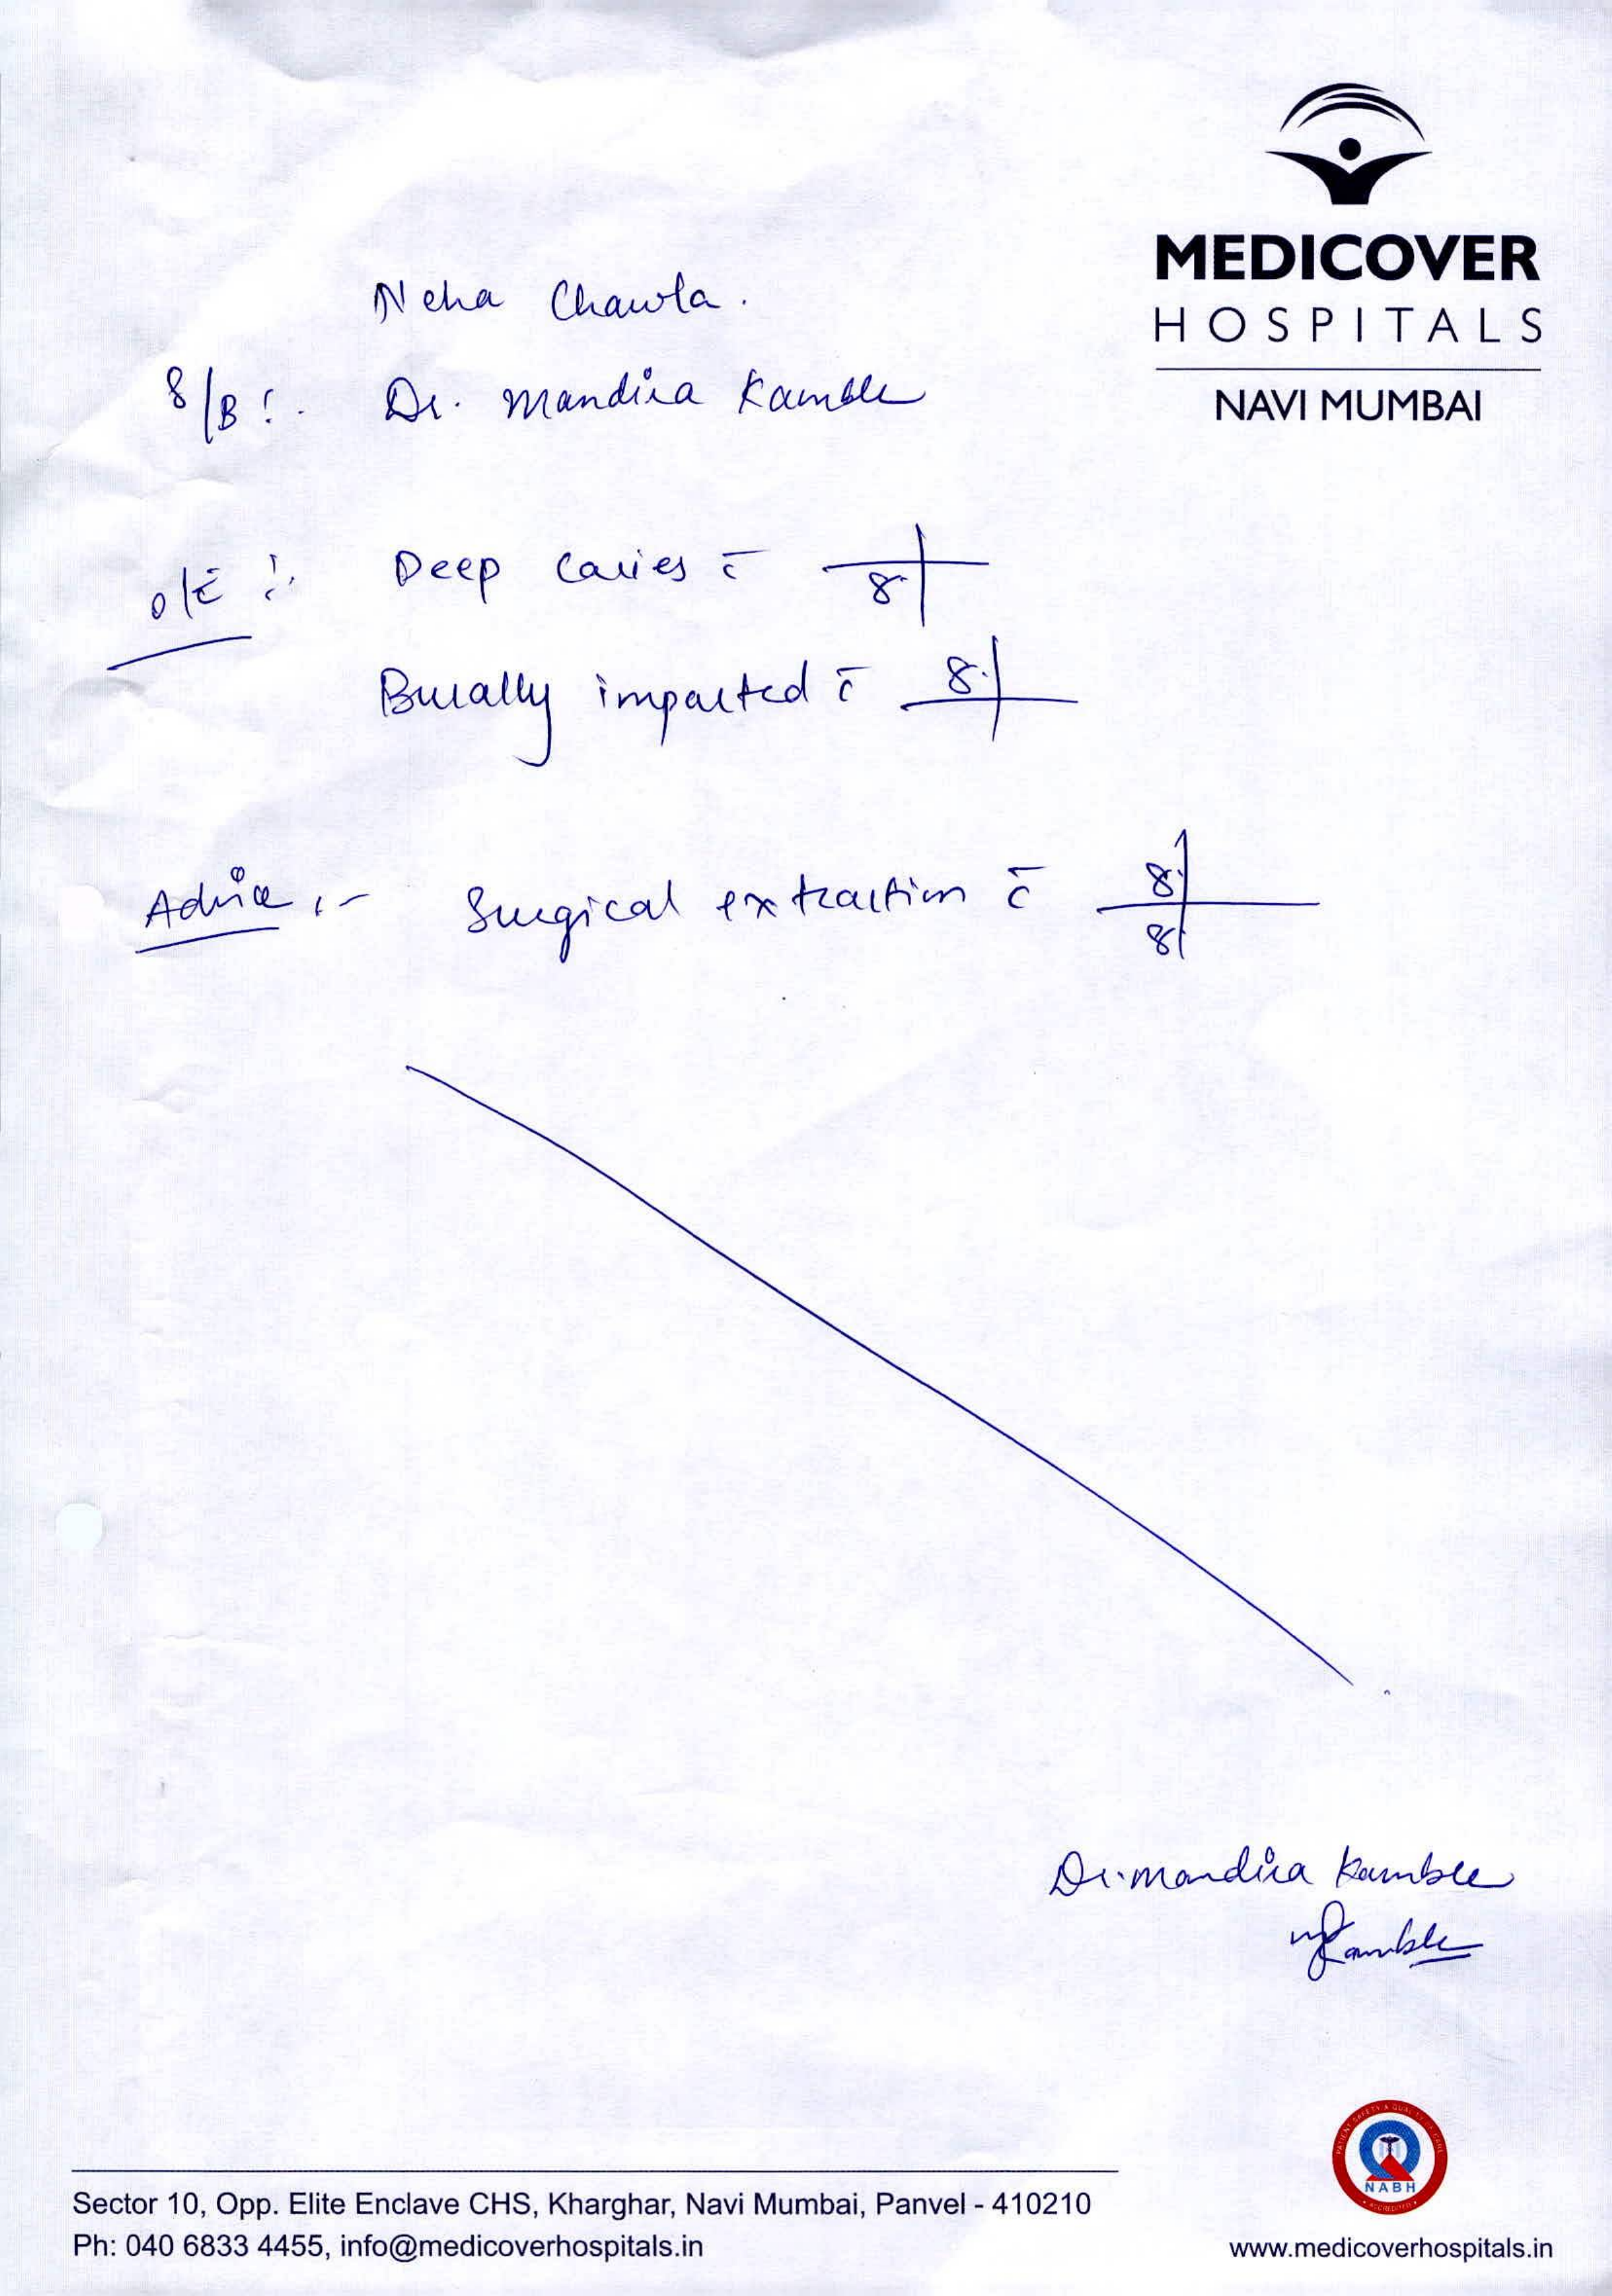 MEDICOVER
HOSPITALS
NAVI MUMBAI
Neha Chawla.
S/B :- Dr. Mandira Kamble
O/E :- Deep caries c̄ 8
Bucally impacted c̄ 8
Advice :- Surgical extraction c̄ 8
8
Dr. Mandira Kamble
Kamble
NABH
Sector 10, Opp. Elite Enclave CHS, Kharghar, Navi Mumbai, Panvel - 410210
Ph: 040 6833 4455, info@medicoverhospitals.in
www.medicoverhospitals.in